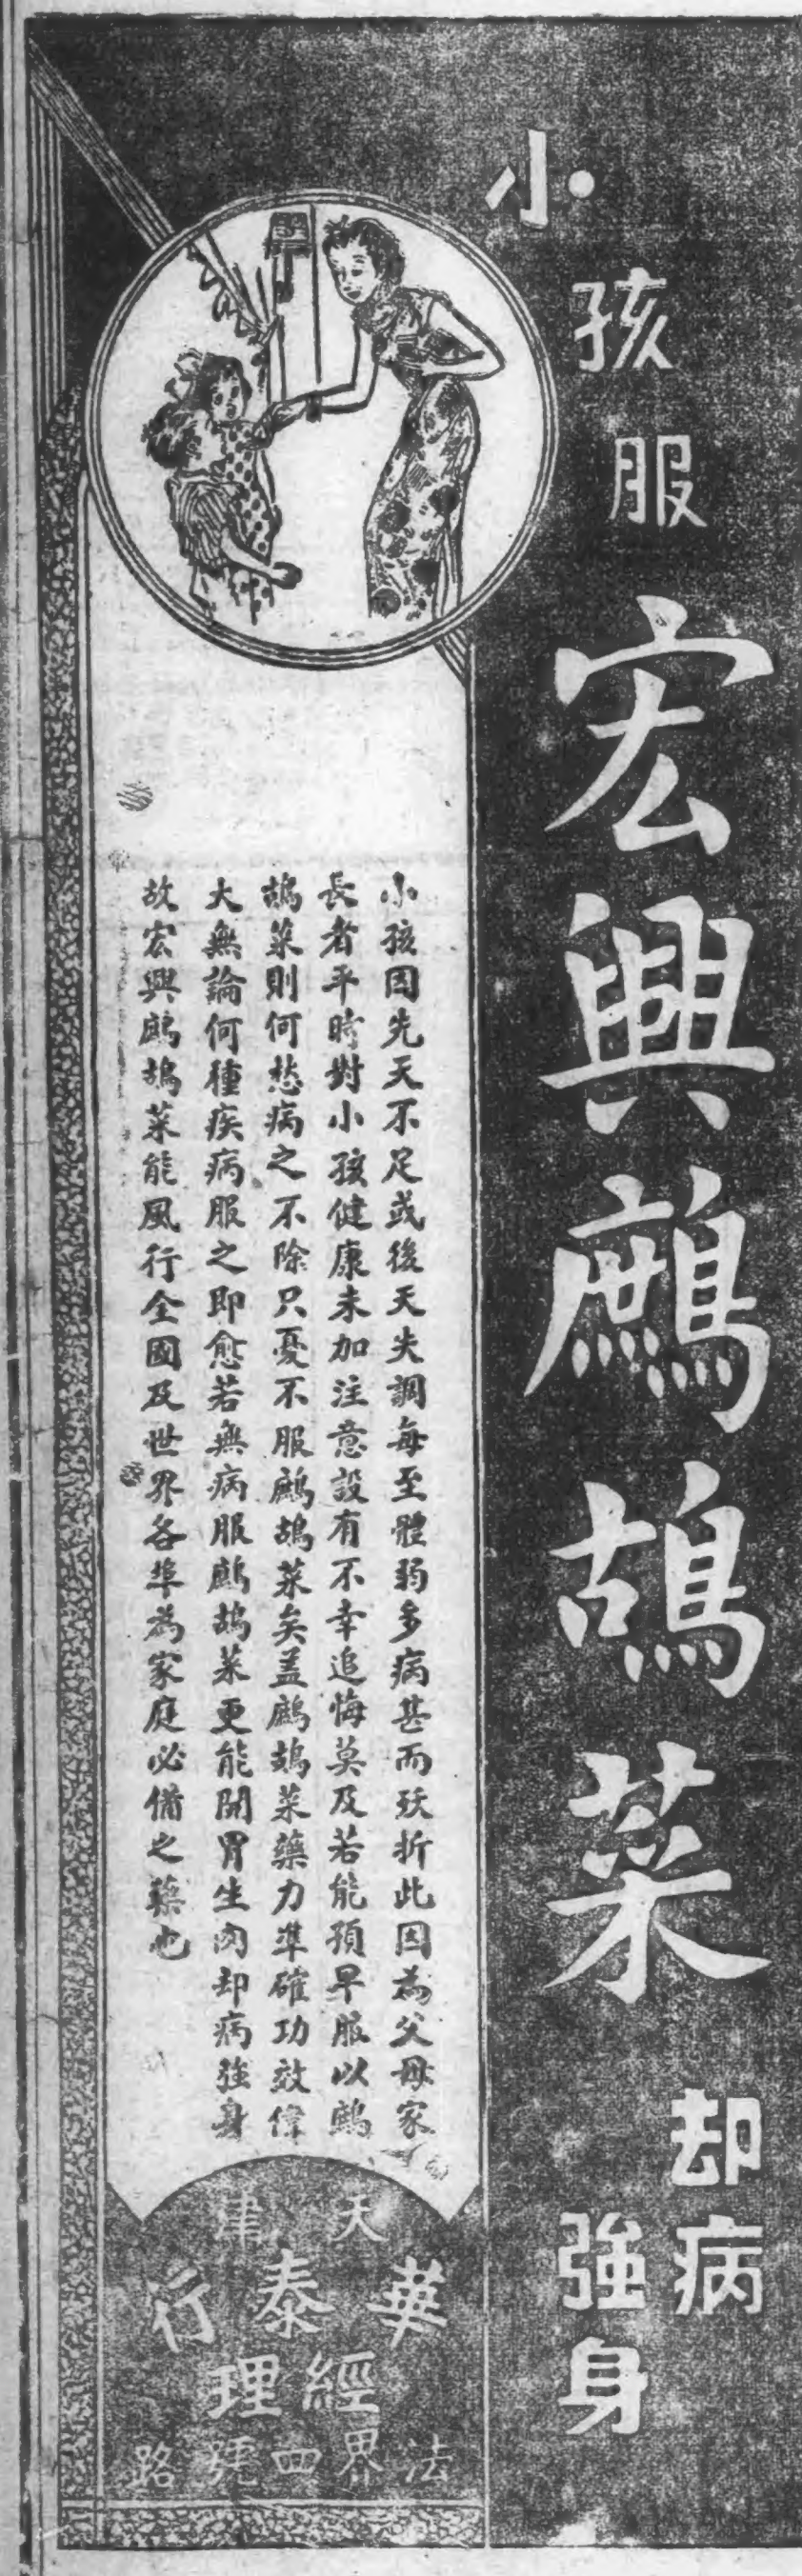 小孩服
宏興鷓鴣菜
却病
強身
小孩因先天不足或後天失調每至體弱多病甚而殀折此因為父母家
長者平時對小孩健康未加注意設有不幸追悔莫及若能預早服以鷓
鴣菜則何愁病之不除只憂不服鷓鴣菜矣盖鷓鴣菜藥力準確功效偉
大無論何種疾病服之即愈若無病服鷓鴣菜更能開胃生肉却病強身
故宏興鷓鴣菜能風行全國及世界各埠為家庭必備之藥也
天津
華泰行
經理
法界四號路